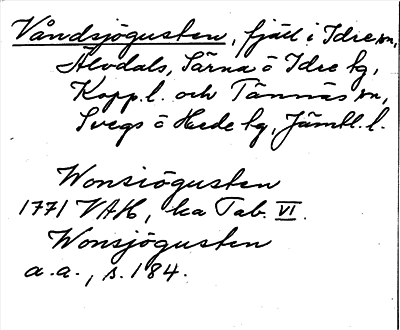 Våndsjögusten, fjäll i Idre sn,
Älvdals, Särna ö Idre tg,
Kopp.l. och Tännäs sn,
Svegs ö Hede tg, Jämtl.l.
Wonsiögusten
1771 VAH, ka Tab. VI.
Wonsjögusten
a.a., s. 184.